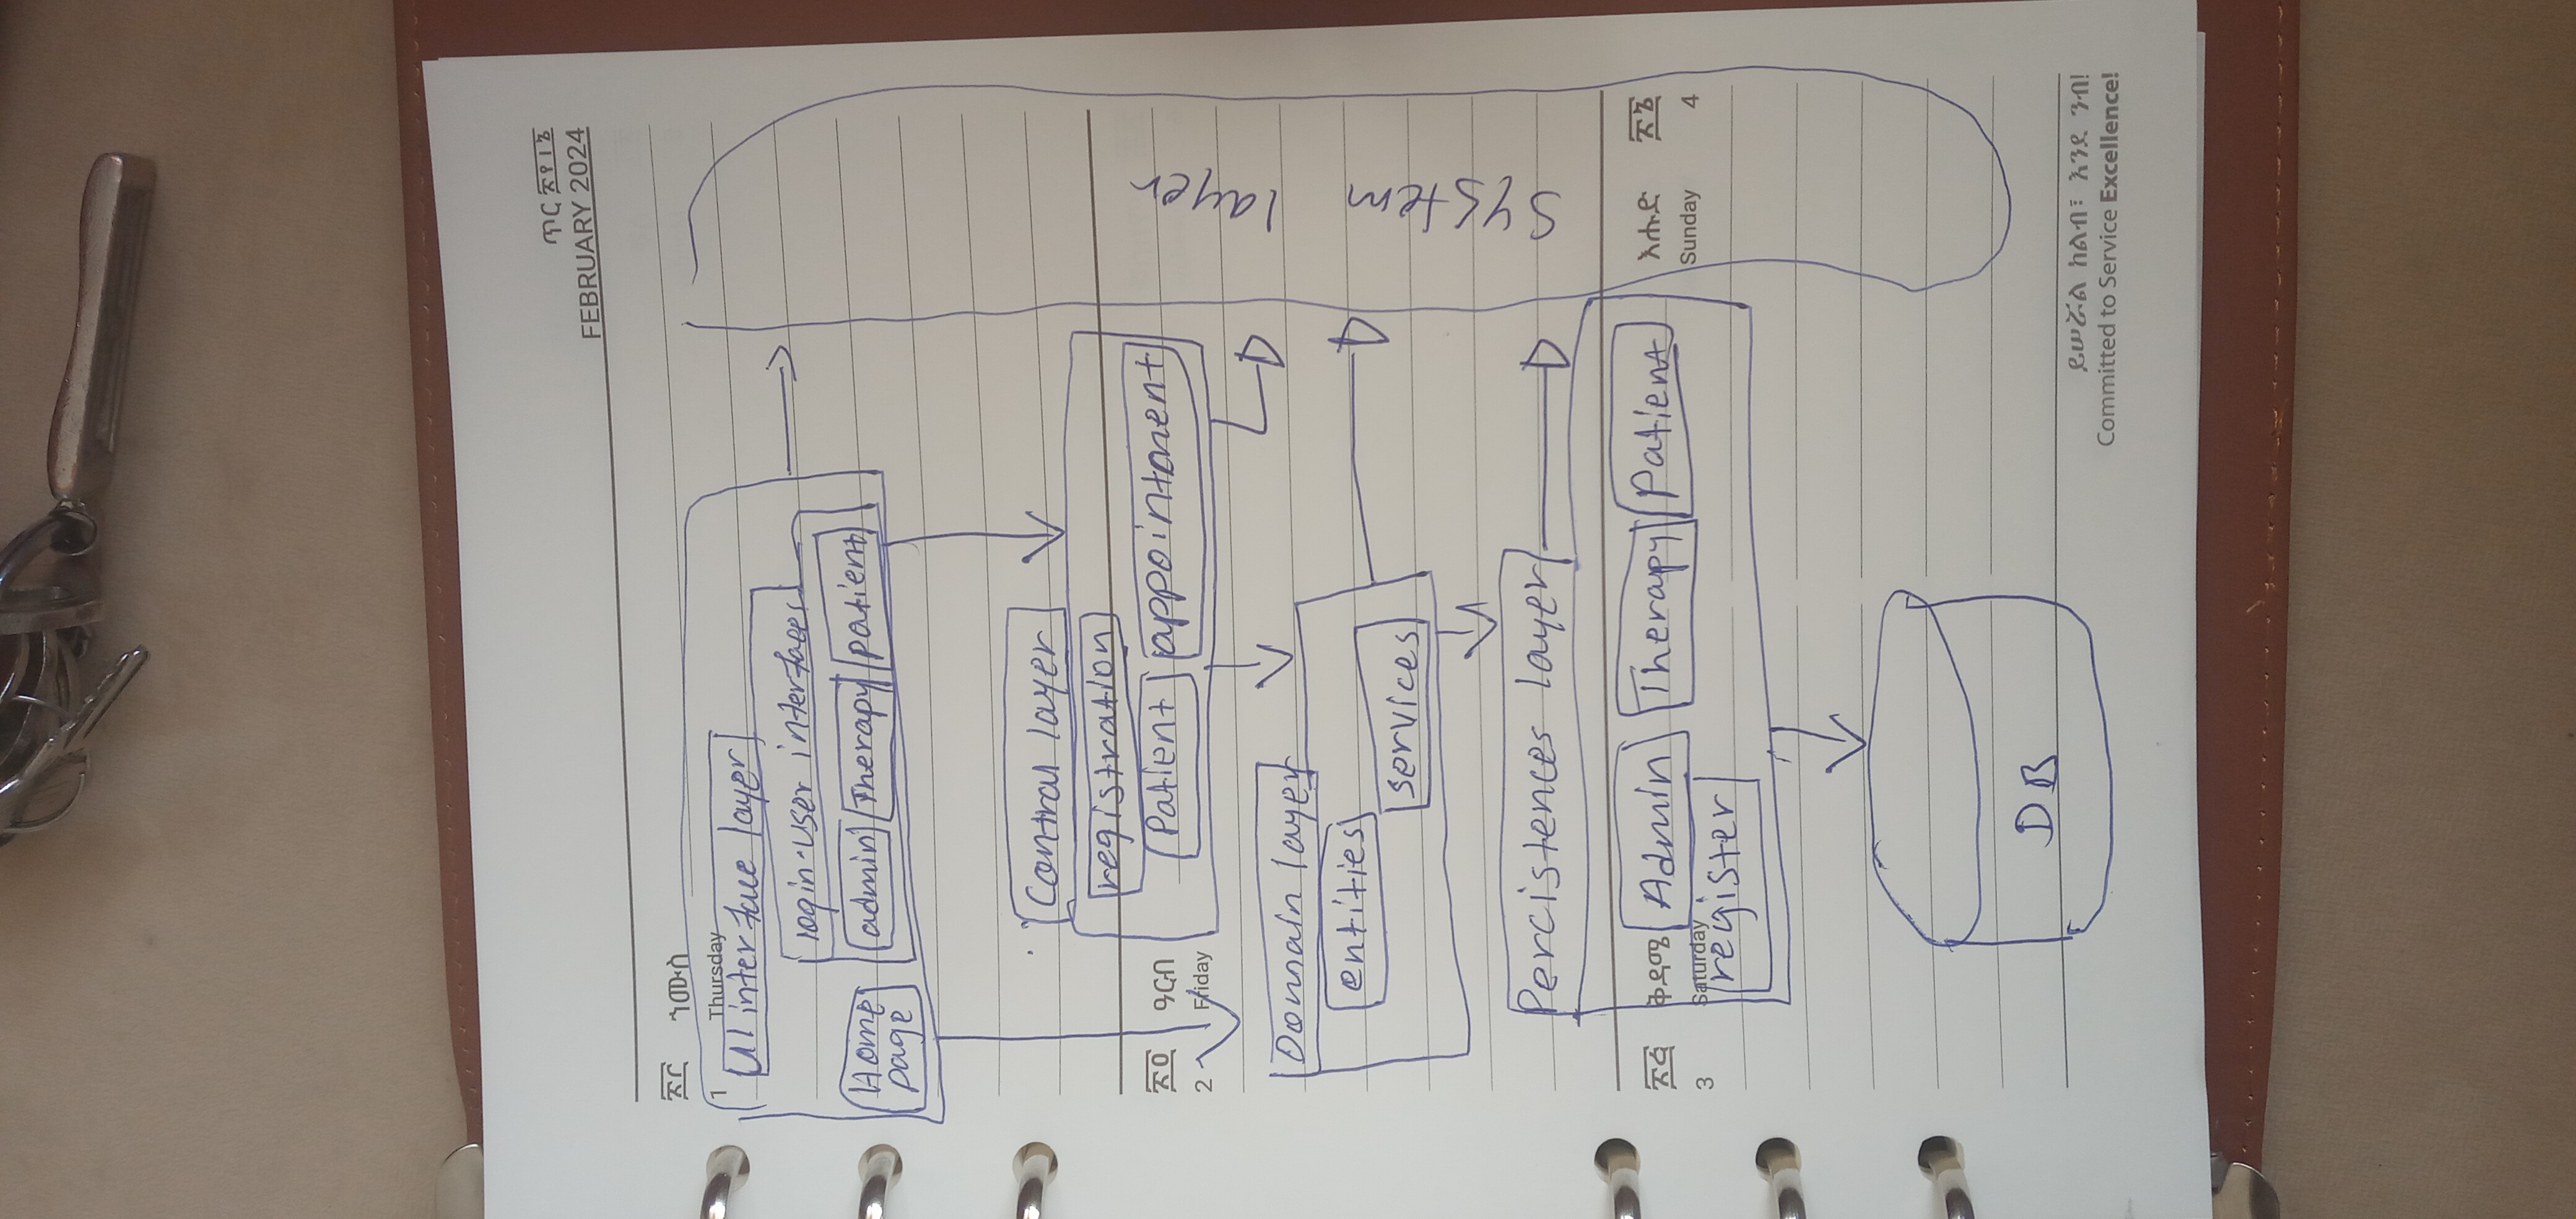 ጥር
FEBRUARY 2024
ኀሙስ
1 Thursday
UI interface layer
login-user interfaces
Home page
admin Therapy patient
Control layer
registration
ዓርብ
Patient appointment
2 Friday
Domain layer
entities
services
Percistences layer
System layer
ቅዳሜ
Admin Therapy Patient
እሑድ
3 Saturday
Sunday 4
register
DB
ይሠሯል ከልብ፣ እንደ ንብ!
Committed to Service Excellence!